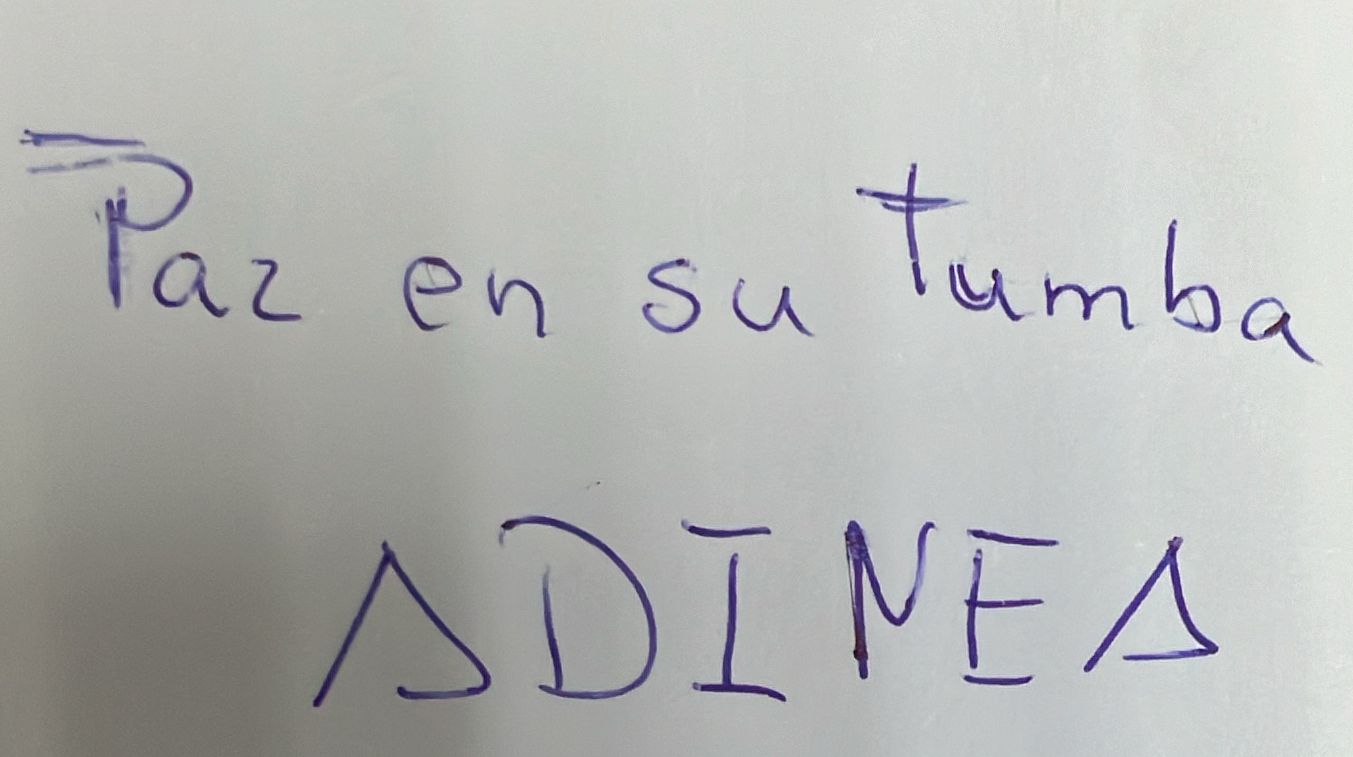 Paz en su tumba
ADINEA